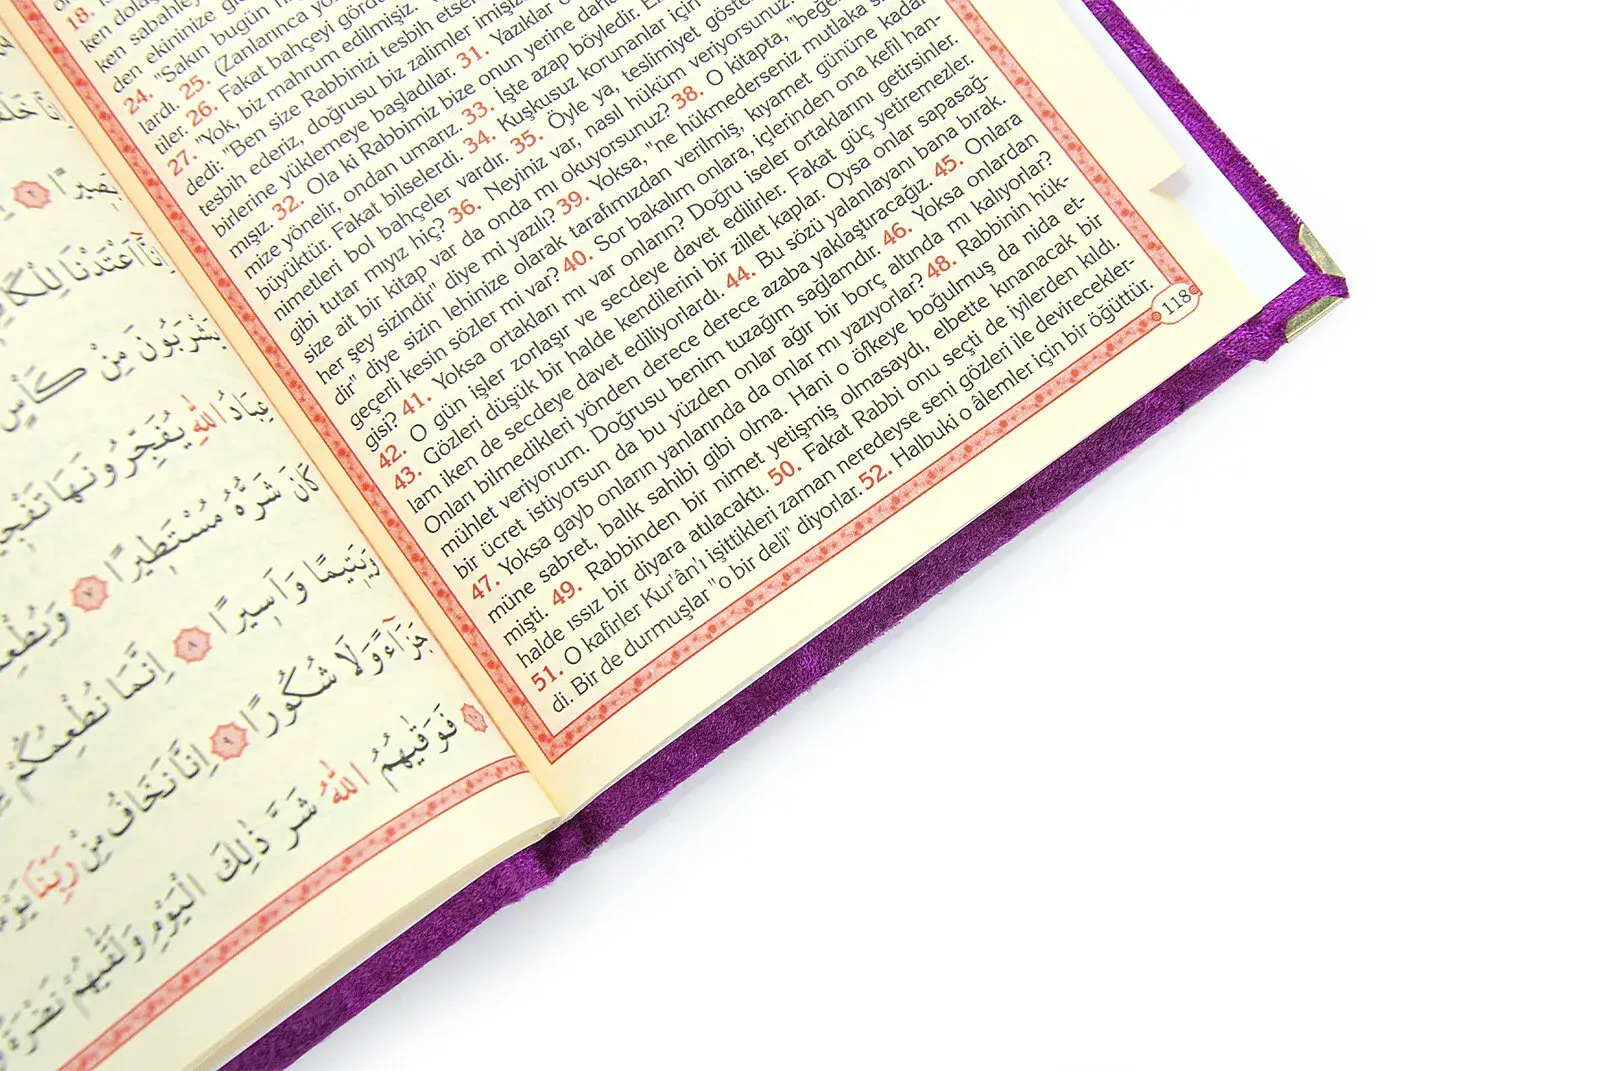 18.
ken
ken sabahley
den ekininize
24. "Sakın bugün
lardı. 25. (Zanlarınca
tiler. 26. Fakat bahçeyi
27. "Yok, biz mahrum edilmişiz.
dedi: "Ben size Rabbinizi tesbih
tesbih ederiz, doğrusu biz zalimler imişiz
birlerine yüklemeye başladılar. 31. Yazıklar
mışız. 32. Ola ki Rabbimiz bize onun yerine daha
mize yönelir, ondan umarız. 33. İşte azap böyledir.
büyüktür. Fakat bilselerdi. 34. Kuşkusuz korunanlar için
nimetleri bol bahçeler vardır. 35. Öyle ya, teslimiyet göste
gibi tutar mıyız hiç? 36. Neyiniz var, nasıl hüküm veriyorsunuz
size ait bir kitap var da onda mı okuyorsunuz? 38. O kitapta, "beğe
her şey sizindir" diye mi yazılı? 39. Yoksa, "ne hükmederseniz mutlaka
dir" diye sizin lehinize olarak tarafımızdan verilmiş, kıyamet gününe kadar
geçerli kesin sözler mi var? 40. Sor bakalım onlara, içlerinden ona kefil han-
gisi? 41. Yoksa ortakları mı var onların? Doğru iseler ortaklarını getirsinler.
42. O gün işler zorlaşır ve secdeye davet edilirler. Fakat güç yetiremezler.
43. Gözleri düşük bir halde kendilerini bir zillet kaplar. Oysa onlar sapasağ-
lam iken de secdeye davet ediliyorlardı. 44. Bu sözü yalanlayanı bana bırak.
Onları bilmedikleri yönden derece derece azaba yaklaştıracağız. 45. Onlara
mühlet veriyorum. Doğrusu benim tuzağım sağlamdır. 46. Yoksa onlardan
bir ücret istiyorsun da bu yüzden onlar ağır bir borç altında mı kalıyorlar?
47. Yoksa gayb onların yanlarında da onlar mı yazıyorlar? 48. Rabbinin hük-
müne sabret, balık sahibi gibi olma. Hani o öfkeye boğulmuş da nida et-
mişti. 49. Rabbinden bir nimet yetişmiş olmasaydı, elbette kınanacak bir
halde ıssız bir diyara atılacaktı. 50. Fakat Rabbi onu seçti de iyilerden kıldı.
51. O kafirler Kur'ân'ı işittikleri zaman neredeyse seni gözleri ile devirecekler-
di. Bir de durmuşlar "o bir deli" diyorlar. 52. Halbuki o âlemler için bir öğüttür.
118
اِنَّا
اِنَّٓا اَعْتَدْنَا
يَشْرَبُونَ مِنْ كَأْسٍ
عِبَادُ اللّٰهِ يُفَجِّرُونَهَا
كَانَ شَرُّهُ مُسْتَطِيرًا ٧
وَيَتِيمًا وَاَسِيرًا ٨ اِنَّمَا نُطْعِمُكُمْ
جَزَٓاءً وَلَا شُكُورًا ٩ اِنَّا نَخَافُ مِنْ رَبِّنَا
فَوَقٰيهُمُ اللّٰهُ شَرَّ ذٰلِكَ الْيَوْمِ وَلَقّٰيهُمْ نَضْرَةً